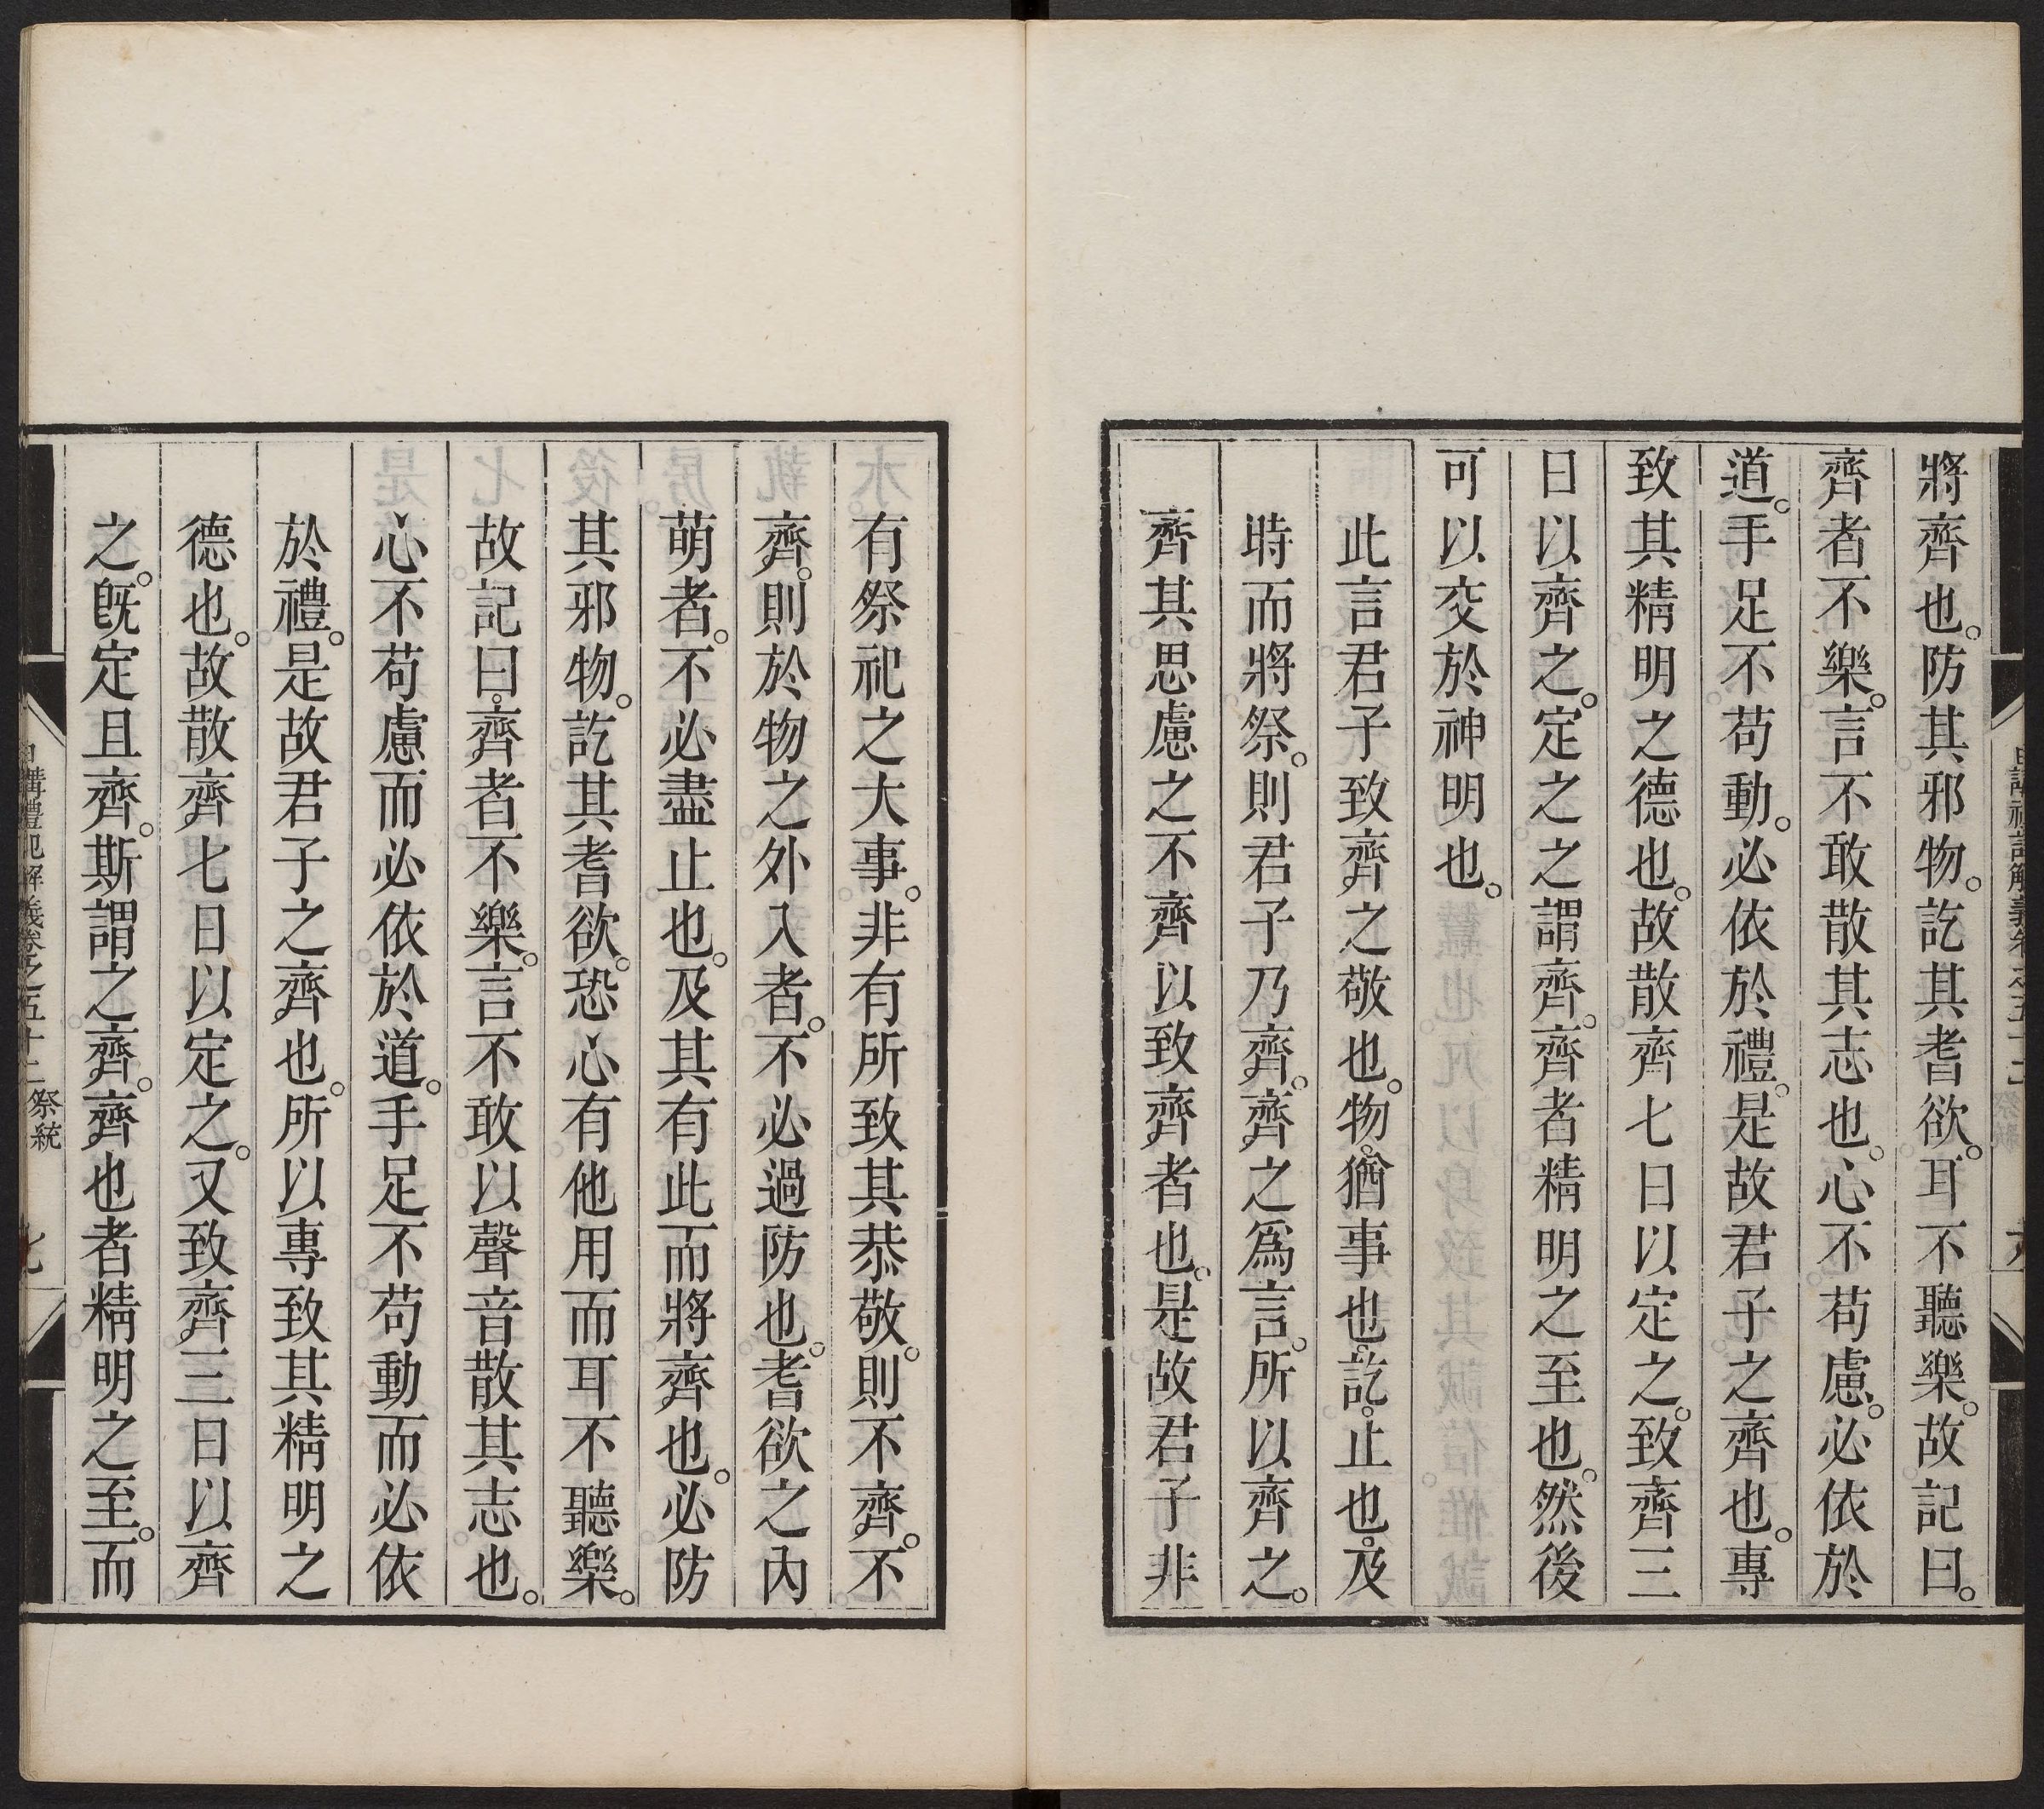 將齊也。防其邪物。訖其耆欲。耳不聽樂。故記曰。
齊者不樂。言不敢散其志也。心不苟慮。必依於
道。手足不苟動。必依於禮。是故君子之齊也。專
致其精明之德也。故散齊七日以定之。致齊三
日以齊之。定之之謂齊。齊者精明之至也。然後
可以交於神明也。
此言君子致齊之敬也。物。猶事也。訖。止也。及
時而將祭。則君子乃齊。齊之爲言。所以齊之。
齊其思慮之不齊以致齊者也。是故君子非
有祭祀之大事。非有所致其恭敬。則不齊。不
齊。則於物之外入者。不必過防也。耆欲之內
萌者。不必盡止也。及其有此而將齊也。必防
其邪物。訖其耆欲。恐心有他用而耳不聽樂。
故記曰。齊者不樂。言不敢以聲音散其志也。
心不苟慮而必依於道。手足不苟動而必依
於禮。是故君子之齊也。所以專致其精明之
德也。故散齊七日以定之。又致齊三日以齊
之。旣定且齊。斯謂之齊。齊也者精明之至。而
日講禮記解義卷之五十二 祭統